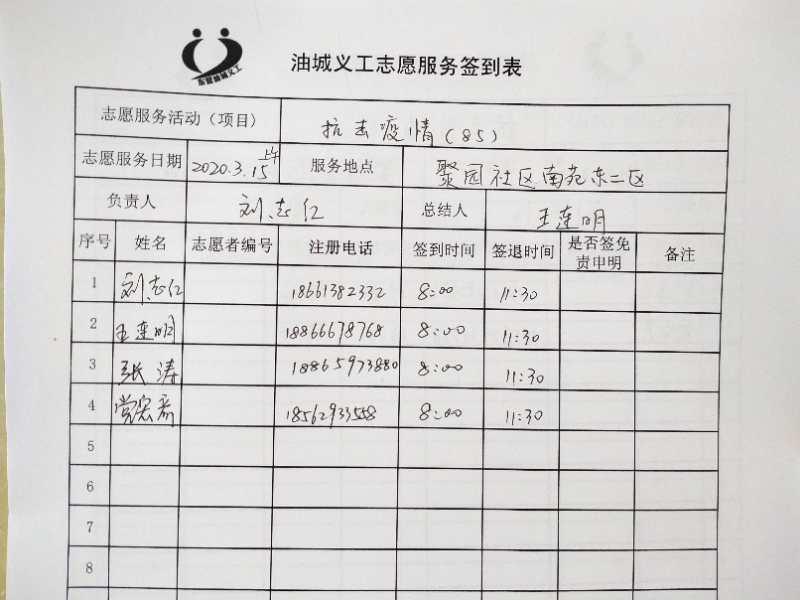 东营油城义工
油城义工志愿服务签到表
志愿服务活动（项目） 抗击疫情（85）
志愿服务日期 2020.3.15上午 服务地点 聚园社区南苑东二区
负责人 刘志仁 总结人 王莲明
序号 姓名 志愿者编号 注册电话 签到时间 签退时间 是否签免责申明 备注
1 刘志仁 18661382332 8:00 11:30
2 王莲明 18866678768 8:00 11:30
3 张涛 18865973880 8:00 11:30
4 18562933558 8:00 11:30
5
6
7
8